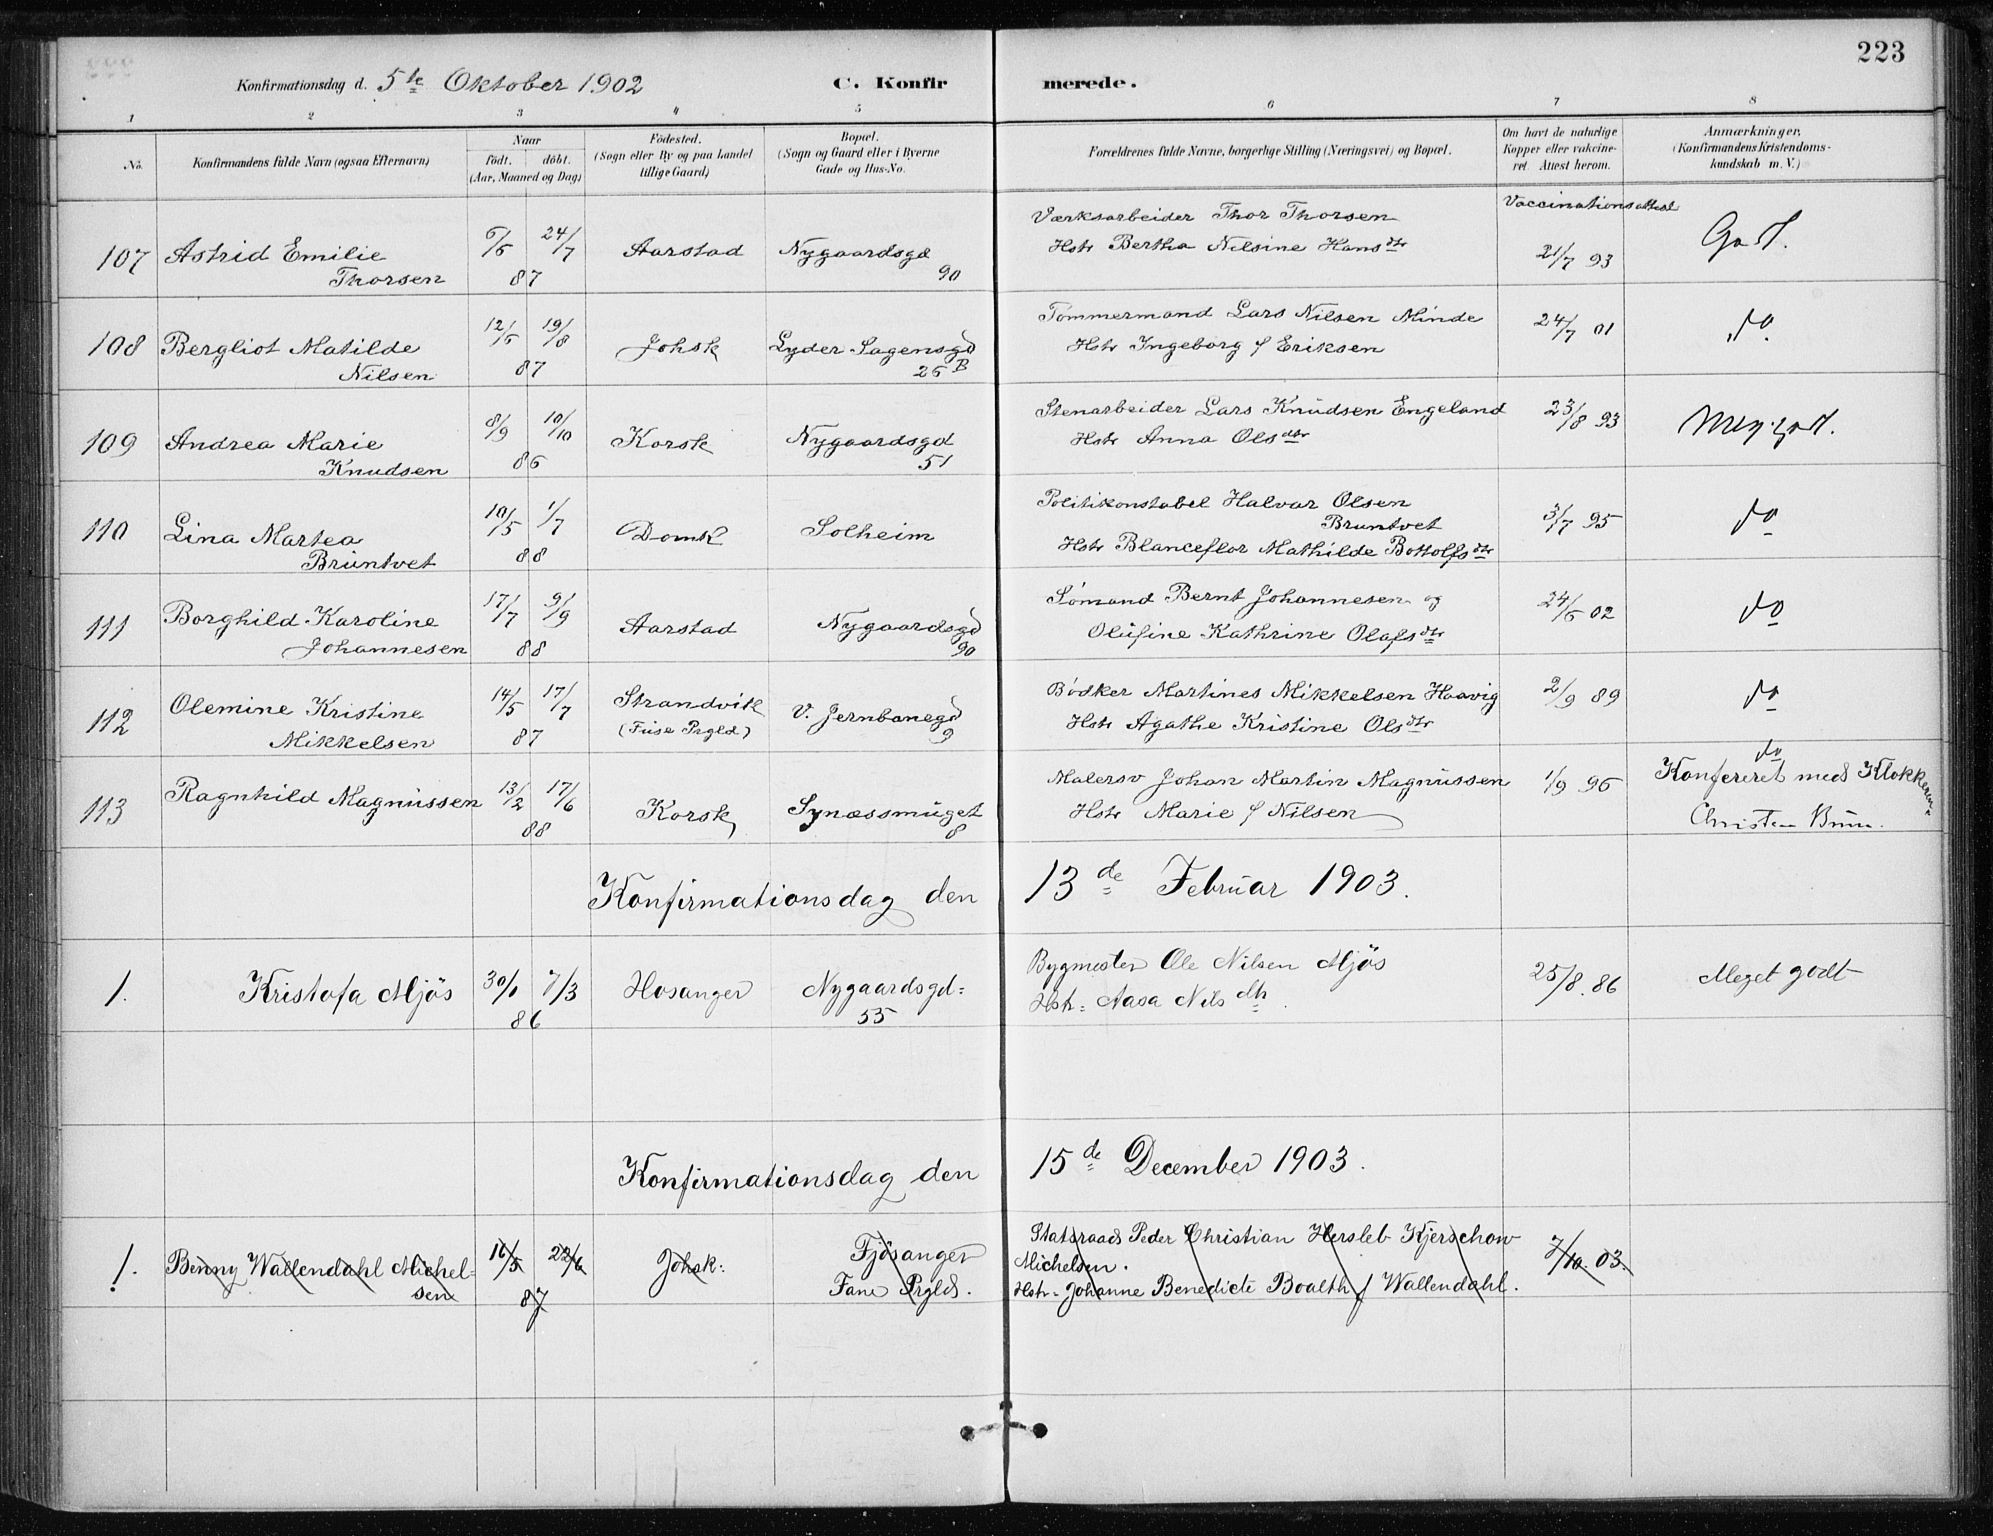 223
Konfirmationsdag d. 5te Oktober 1902 C. Konfirmerede.
1 2 3 4 5 6 7 8
No. Konfirmandens fulde Navn (ogsaa Efternavn) Naar født. døbt. (Aar, Maaned og Dag) Födested. (Sogn eller By og paa Landet tillige Gaard) Bopæl. (Sogn og Gaard eller i Byerne Gade og Hus-No. Forældrenes fulde Navne, borgerlige Stilling (Næringsvei) og Bopæl. Om havt de naturlige Kopper eller vakcineret. Attest herom. Anmærkninger. (Konfirmandens Kristendomskundskab m. V.)
Vaccinationsattest
107 Astrid Emilie 6/6 24/7 Aarstad Nygaardsgd Værksarbeider Thor Thorsen 21/7 93 Godt.
Thorsen 87 90 Hstr Bertha Nilsine Hansdtr
108 Bergliot Matilde 12/6 19/8 Johsk Lyder Sagensgd Tømmermand Lars Nilsen Minde 24/7 01 do.
Nilsen 87 26 B Hstr Ingeborg f Eriksen
109 Andrea Marie 8/9 10/10 Korsk Nygaardsgd Stenarbeider Lars Knudsen Engeland 23/8 93 Meg. godt.
Knudsen 86 51 Hstr Anna Olsdtr
110 Lina Martea 10/5 1/7 Domk Solheim Politikonstabel Halvar Olsen 3/7 95 do
Bruntvet 88 Bruntvet
Hstr Blanceflor Mathilde Bottolfsdtr
111 Borghild Karoline 17/7 9/9 Aarstad Nygaardsgd Sømand Bernt Johannesen og 24/6 02 do
Johannesen 88 90 Olufine Kathrine Olafsdtr
112 Olemine Kristine 14/5 17/7 Strandvik V. Jernbanegd Bødker Martines Mikkelsen Haavig 2/9 89 do
Mikkelsen 87 (Fuse Prgld) 9 Hstr Agathe Kristine Olsdtr
113 Ragnhild Magnussen 13/2 17/6 Korsk Synæssmuget Malersv Johan Martin Magnussen 1/9 96 do
88 8 Hstr Marie f Nilsen Konfereret med Klokkeren.
Christen Brun.
Konfirmationsdag den 13de Februar 1903.
1. Kristofa Mjös 30/1 7/3 Hosanger Nygaardsgd: Bygmester Ole Nilsen Mjös 25/8. 86 Meget godt
86 55 Hstr: Aasa Nilsdtr.
Konfirmationsdag den 15de December 1903.
1. Benny Wallendahl Michel= 16/5 22/6 Johsk: Fjösanger Statsraad Peder Christian Hersleb Kjerschow 7/10. 03.
sen 87 Fane Prgld. Michelsen.
Hstr: Johanne Benedicte Boalth f Wallendahl.